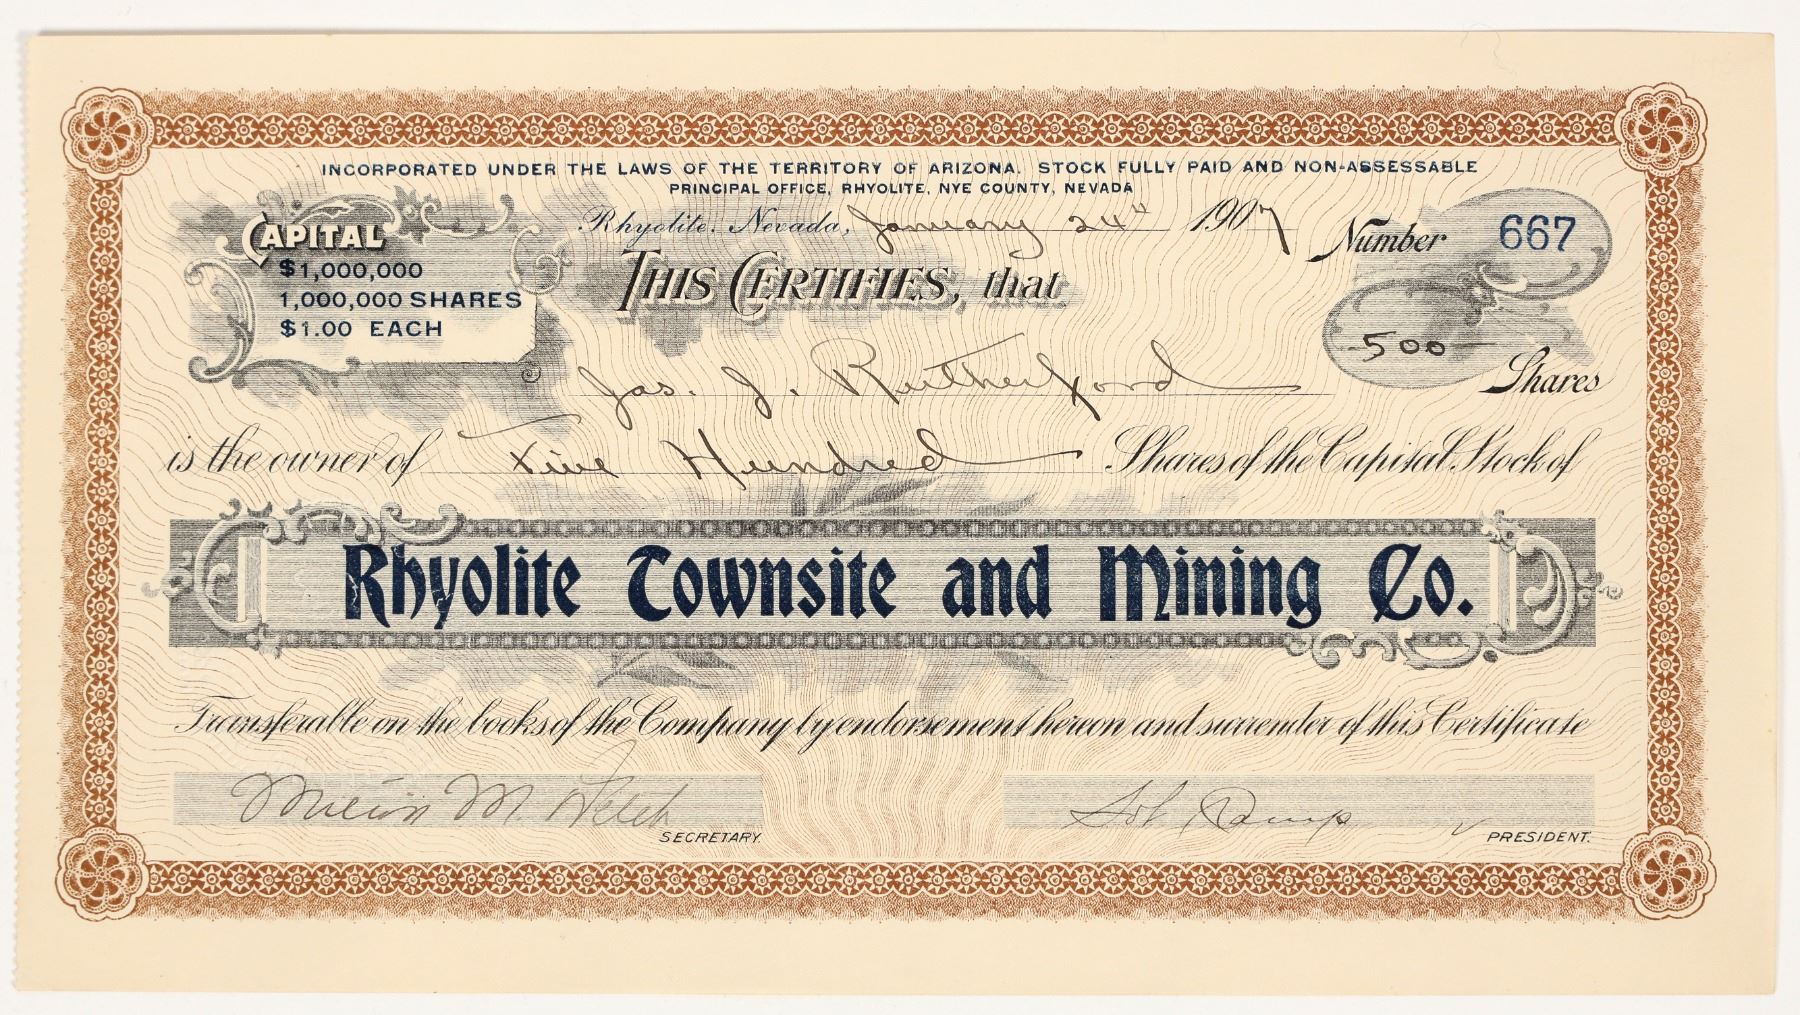 INCORPORATED UNDER THE LAWS OF THE TERRITORY OF ARIZONA. STOCK FULLY PAID AND NON-ASSESSABLE
PRINCIPAL OFFICE, RHYOLITE, NYE COUNTY, NEVADA
Rhyolite, Nevada, January 24th 1907 Number 667
CAPITAL
$1,000,000
1,000,000 SHARES
$1.00 EACH
THIS CERTIFIES, that
500 Shares
Jas. J. Rutherford
is the owner of Five Hundred Shares of the Capital Stock of
Rhyolite Townsite and Mining Co.
Transferable on the books of the Company by endorsement hereon and surrender of this Certificate
M. SECRETARY.
Sol Camp PRESIDENT.